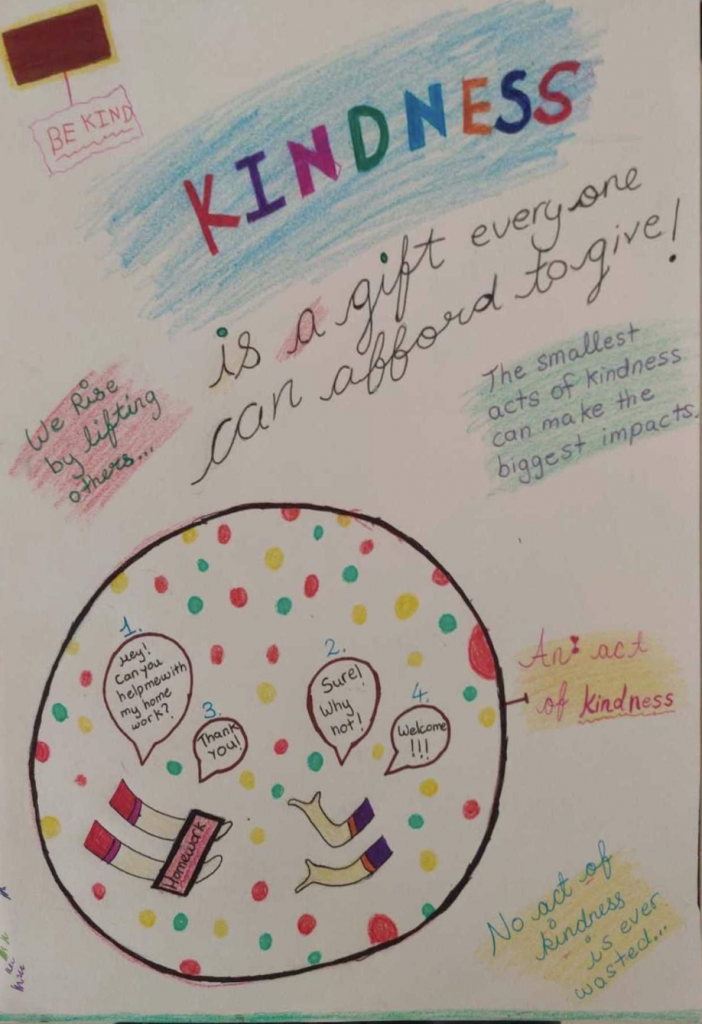 BE KIND
KINDNESS
is a gift everyone
can afford to give!
We Rise
by lifting
others...
The smallest
acts of kindness
can make the
biggest impacts.
1.
Hey!
Can you
help me with
my home
work?
2.
Sure!
Why
not!
3.
Thank
you!
4.
Welcome
!!!
Homework
An act
of kindness
No act of
kindness
is ever
wasted...